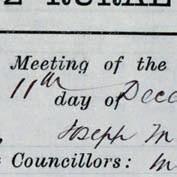 RURAL
Meeting of the
11th day of Dece
Joseph M
Councillors: M